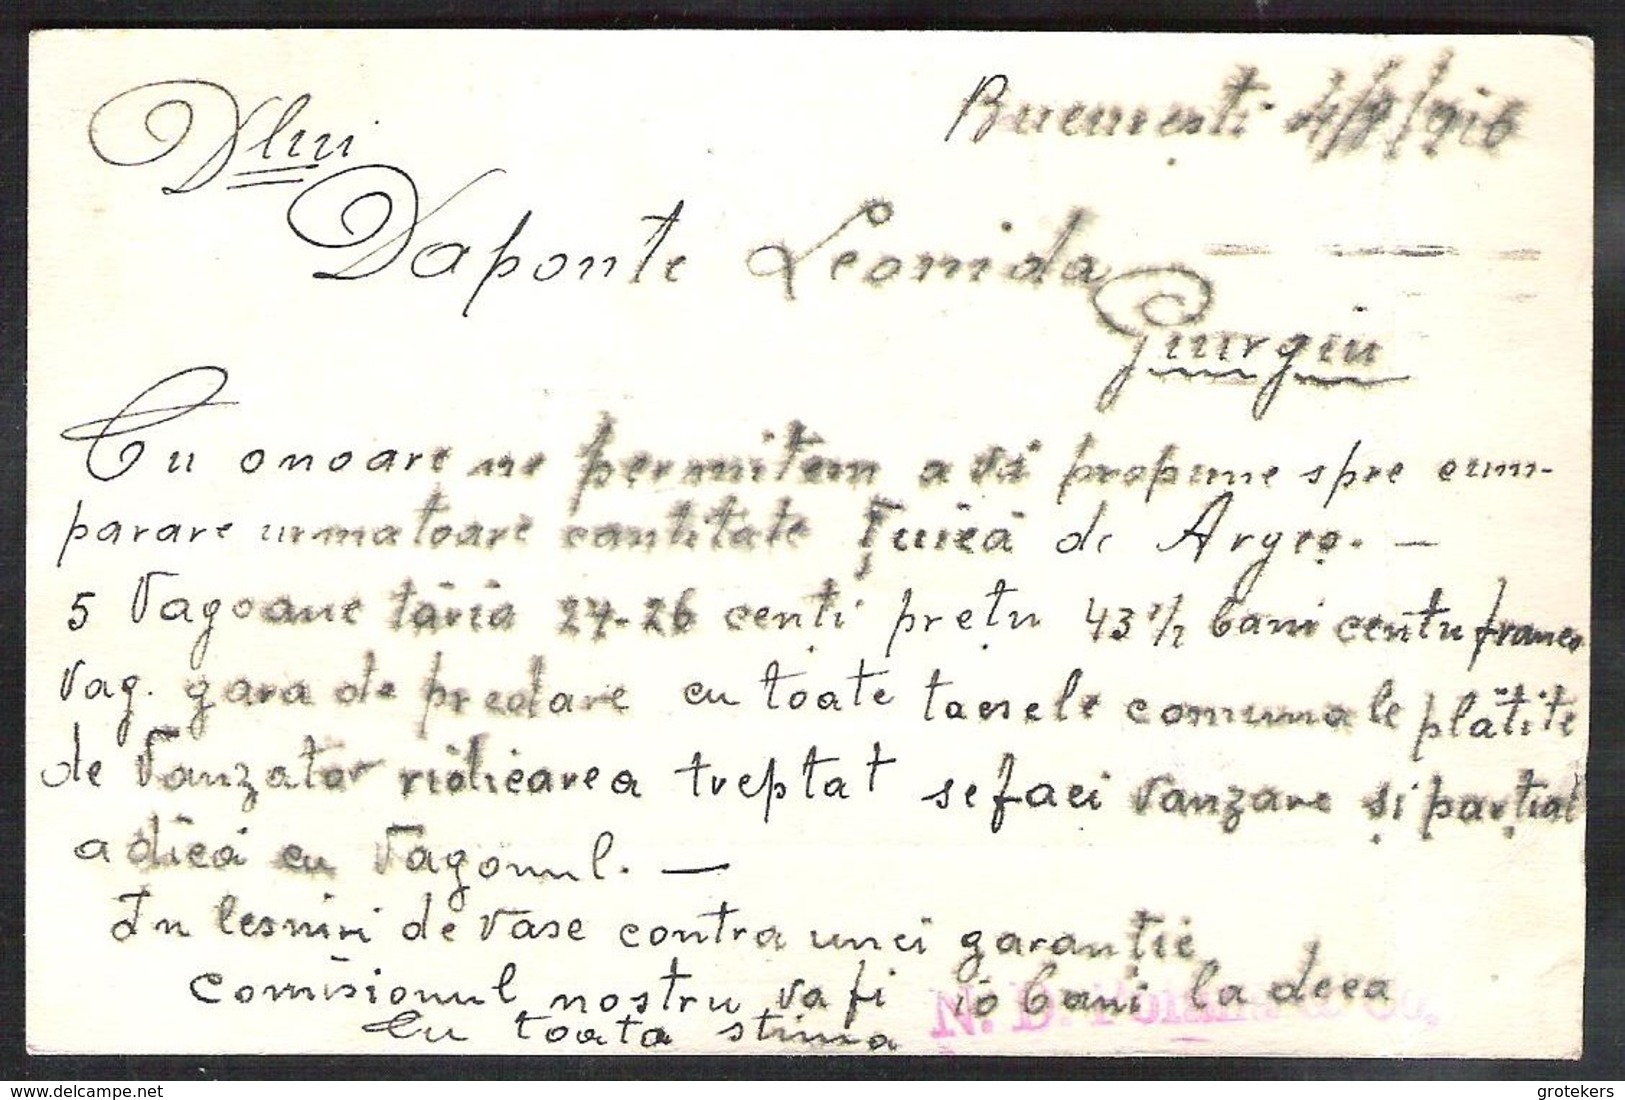 Dlui București 4/8/916
Daponte Leonida
Giurgiu
Cu onoare ne permitem a vă propune spre cum-
parare urmatoare cantitate Țuică de Argeș. —
5 Vagoane tăria 24-26 cenți prețu 43 1/2 bani centu franco
vag. gara de predare cu toate taxele comunale plătite
de vanzator ridicarea treptat se faci vanzare și parțial
adică cu vagonul. —
În lesniri de vase contra unei garanție
comisionul nostru va fi 10 bani la deca
Cu toata stima N. D. Poiana & Co.
delcampe.net
grotekers